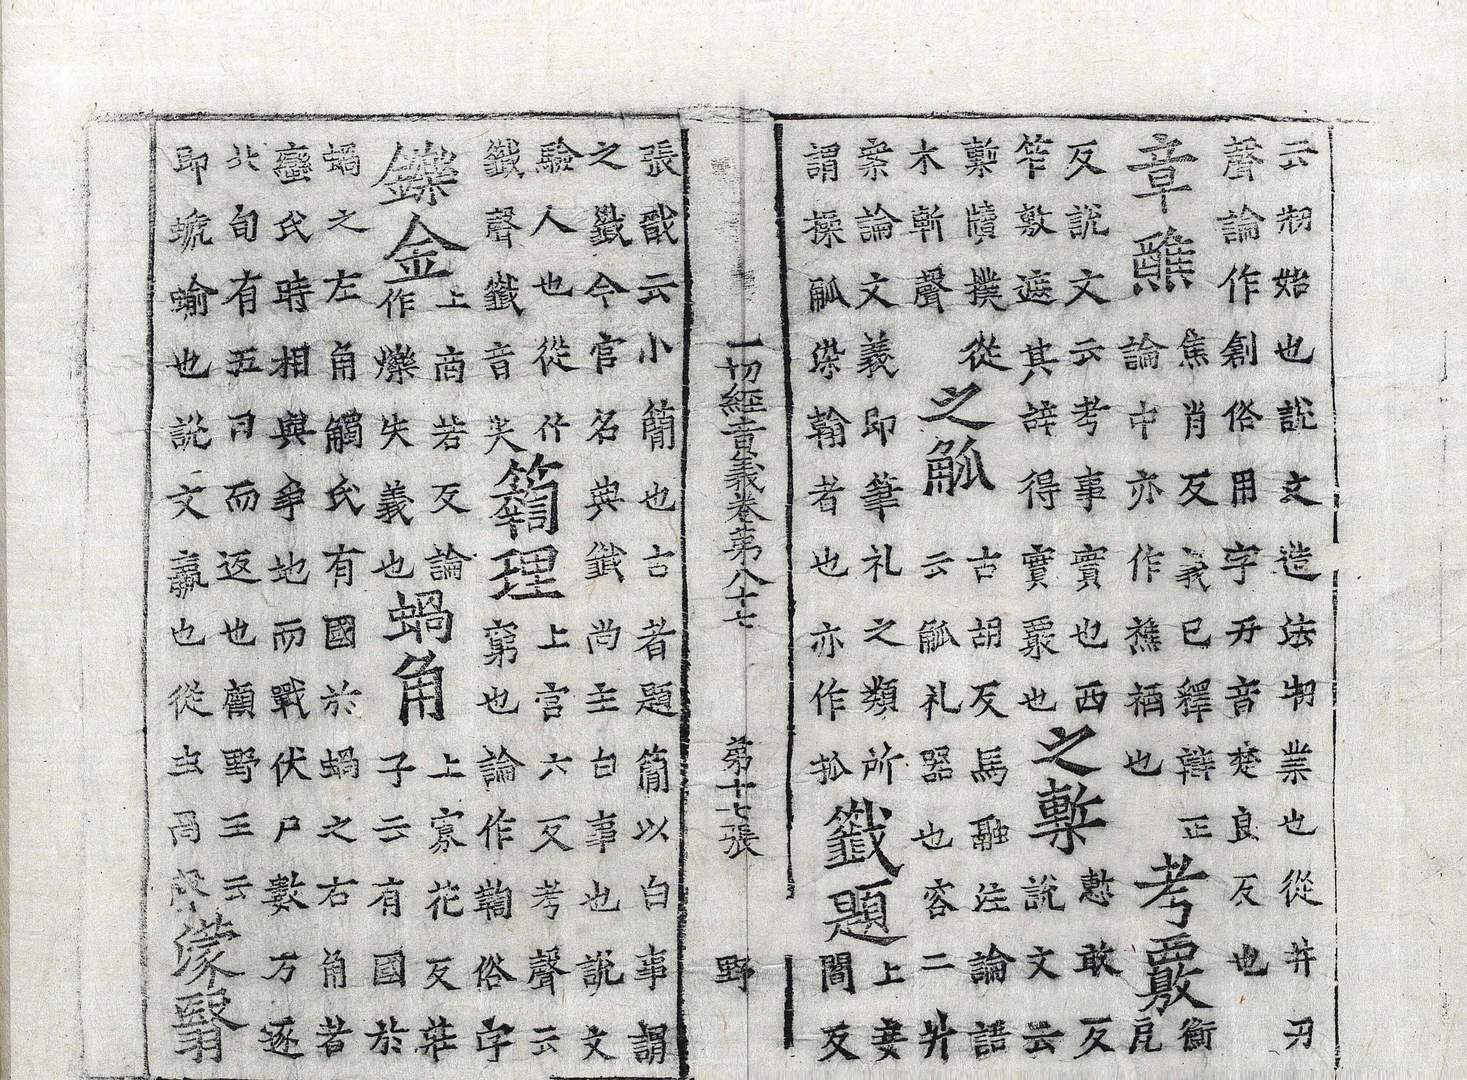 云刱始也說文造法刱業也從井刃
聲論作創俗用字丒音楚良反也
章醮
焦肖反義已釋辯正
論中亦作樵禉也
考覈
衡
戹
反說文云考事實也西
笮敷遮其辭得實覈也
之槧
慙敢反
說文云
槧牘撲從
木斬聲
之觚
古胡反馬融注論語
云觚礼器也容二升
案論文義即筆礼之類所
謂操觚染翰者也亦作抓
籤題
上妾
閻反
一切經音義卷第八十七 第十七張 野
張戩云小簡也古者題簡以白事謂
之籤今官名典籤尚主白事也說文
驗人也從竹
韱聲韱音尖
理
上宮六反考聲云
窮也論作鞫俗字
鑠金
上商若反論
作爍失義也
蝸角
上寡花反莊
子云有國於
蝸之左角觸氏有國於蝸之右角者
蠻氏時相與爭地而戰伏尸數万逐
北旬有五日而返也顧野王云
即螔蝓也說文蠃也從虫咼聲
濛翳